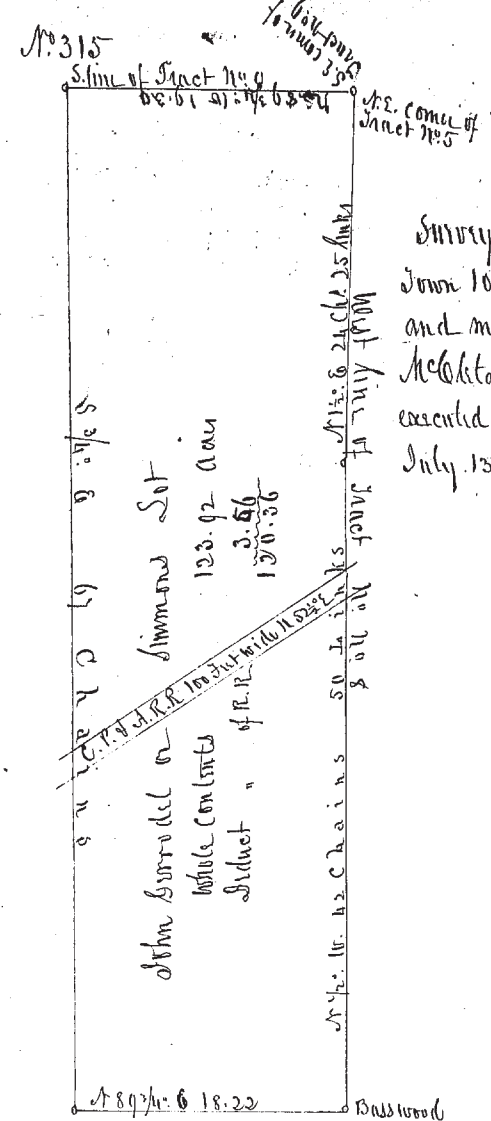 No. 315
S. E. corner of
Tract No 9
S. line of Tract No. 9
N 89 3/4° W 19.30
N. E. corner of
Tract No. 5
Survey
Town 10
and m
executed
July. 13
N 1½° E 24 Chs. 25 links
West line of Tract No 8
S 3/4° E 67 Chains
John Gorrodel or Simmons Lot
Whole Contents 123.92 acres
Deduct " of R.R 3.56
120.36
C. P. & A. R. R 100 Feet wide N 52½° E
N ½° W. 42 Chains 50 Links
N 89 3/4° E 18.22
Basswood